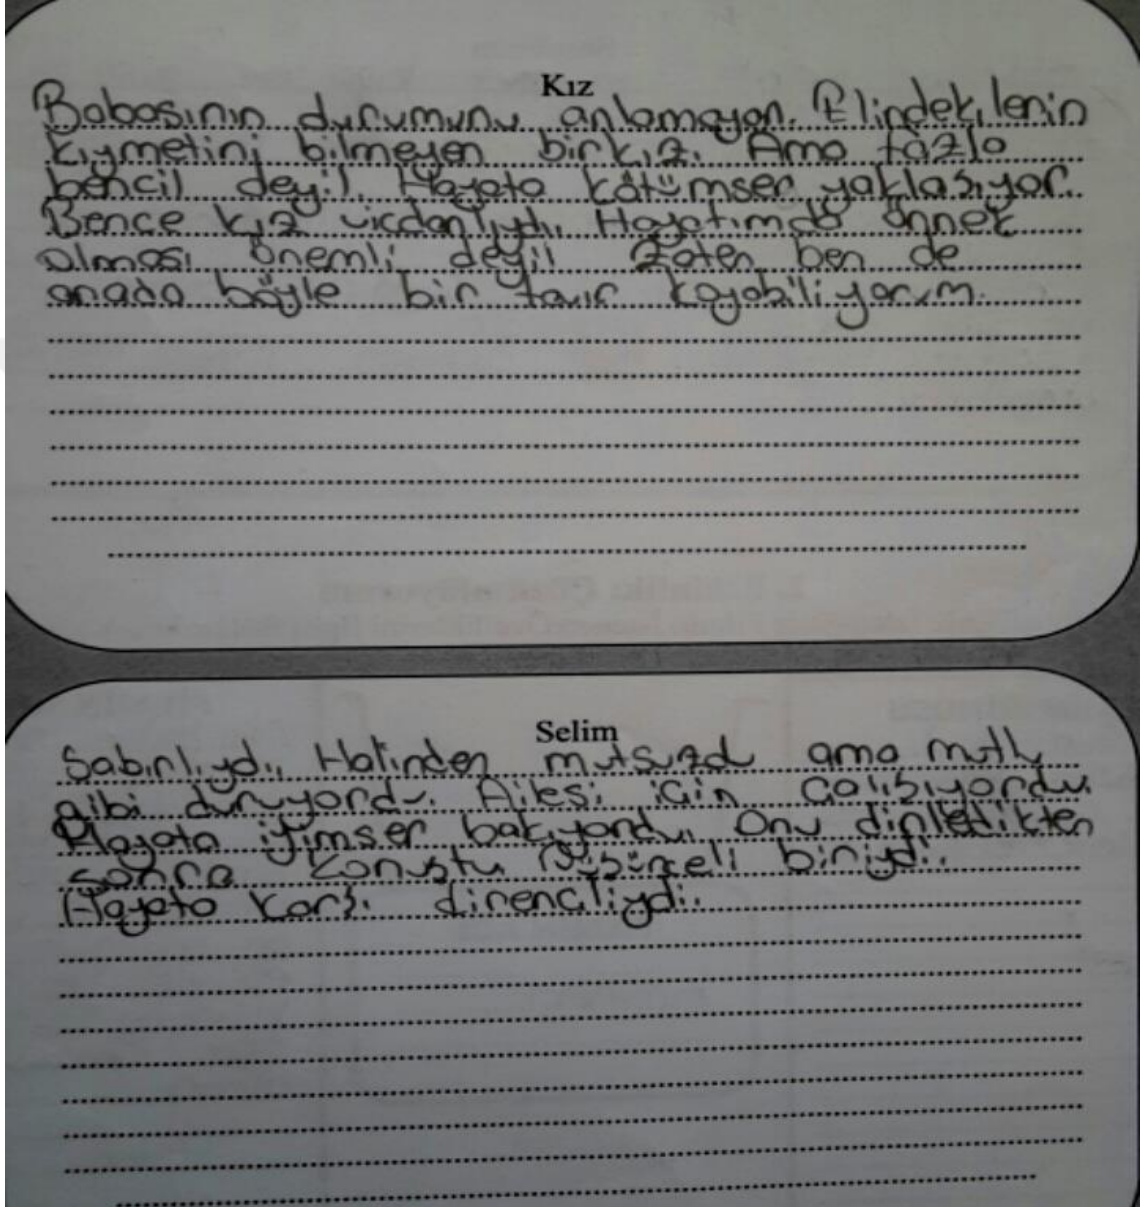 Kız
Babasının durumunu anlamayan. Elindekilerin
kıymetini bilmeyen bir kız. Ama fazla
bencil deyil. Hayata kötümser yaklaşıyor.
Bence kız vicdanlıydı. Hayatımda örnek
olması önemli deyil Zaten ben de
arada böyle bir tavır koyabiliyorum.
Selim
Sabırlıydı. Halinden mutsuzdu ama mutlu
gibi duruyordu. Ailesi için çalışıyordu.
Hayata iyimser bakıyordu. Onu dinledikten
sonra konuştu. biriydi.
Hayata karşı dirençliydi.